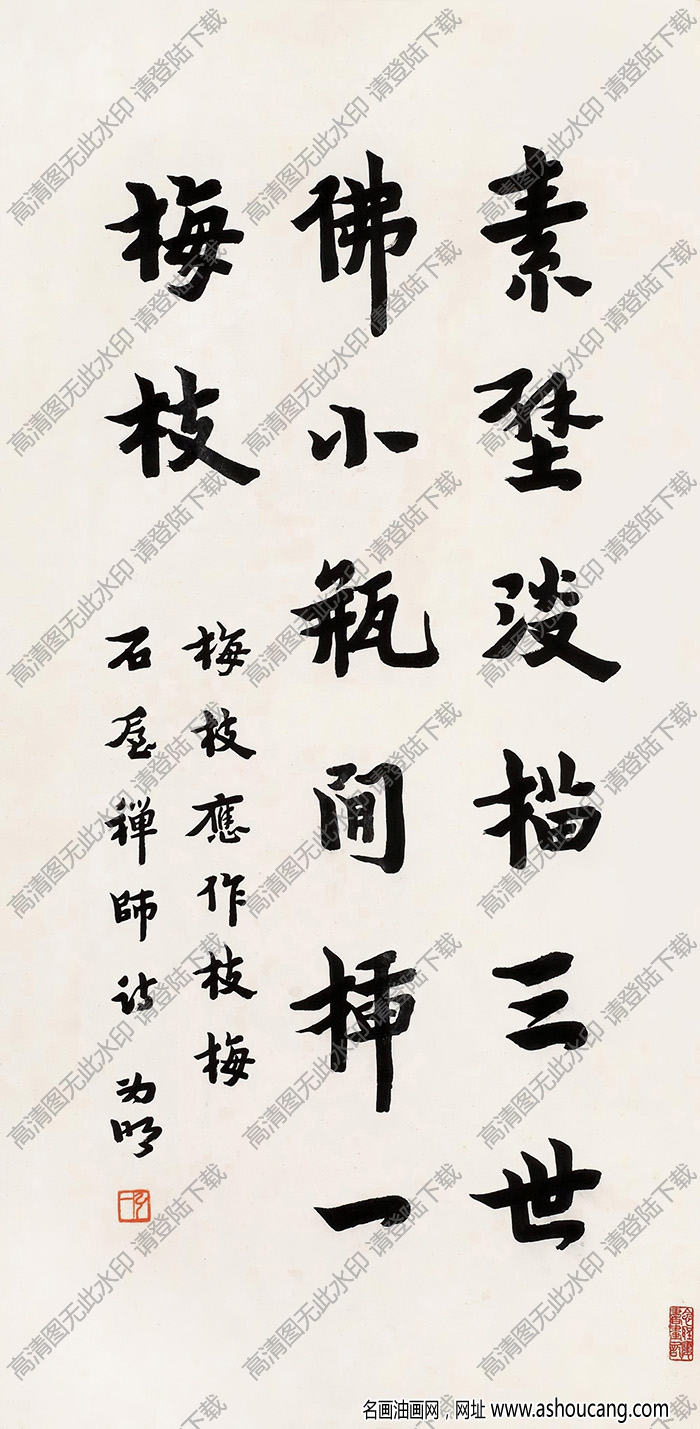 素壁淡描三世
佛小瓶閒插一
梅枝
梅枝應作枝梅
石屋禪師詩
高清图无此水印 请登陆下载
名画油画网，网址 www.ashoucang.com